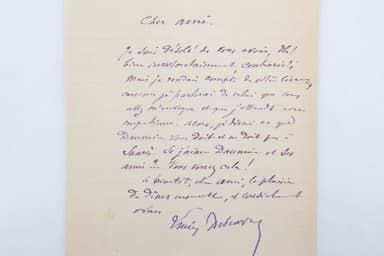 Cher ami,
Je suis désolé de vous avoir, Oh!
bien involontairement contrarié;
Mais je rendrai compte de votre livre,
comme je parlerai de celui que vous
allez m'envoyer et que j'attends avec
impatience. Alors, je dirai ce que
Daumier vous doit et ne doit pas à
Si j'aime Daumier et ses
amis? Vous verrez cela!
à bientôt, cher ami, le plaisir
de dîner ensemble, et cordialement
vôtre